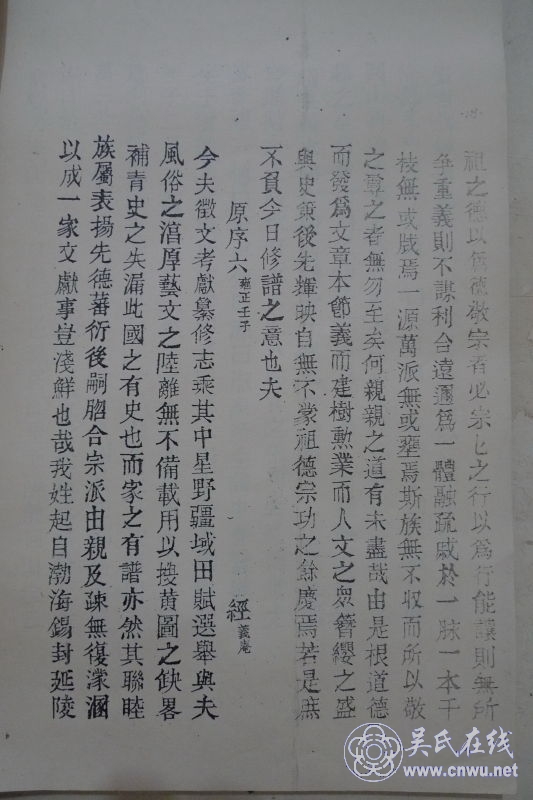 祖之德以為德敬宗者必宗七之行以為行能讓則無所
爭重義則不謀利合遠邇為一體融䟽戚於一脉一本千
枝無或戕焉一源萬派無或壅焉斯族無不收而所以敬
之尊之者無勿至矣何親親之道有未盡哉由是根道德
而發為文章本節義而建樹勲業而人文之眾簪纓之盛
與史策後先輝映自無不蒙祖德宗功之餘慶焉若是庶
不負今日修譜之意也夫
原序六 雍正壬子 經 義庵
今夫徵文考獻纂修志乘其中星野疆域田賦選舉與夫
風俗之湻厚藝文之陸離無不備載用以接黄圖之缺畧
補青史之失漏此國之有史也而家之有譜亦然其聯睦
族屬表揚先德蕃衍後嗣脗合宗派由親及疎無復濛溷
以成一家文獻事豈淺鮮也哉我姓起自渤海錫封延陵
吴氏在线
www.cnwu.net